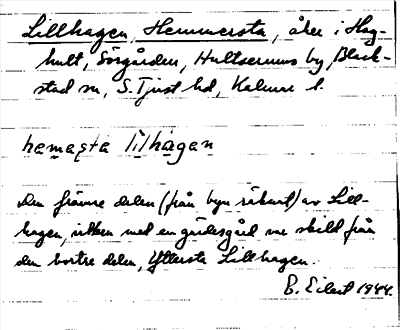 Lillhagen, Hemmersta, åker i Hag-
hult, Sörgården, Hultserums by, Black-
stad sn, S. Tjust hd, Kalmar l.
hemęsta lilhagan
Den främre delen (från byn räknat) av Lill-
hagen, vilken med en gärdesgård var skild från
den bortre delen, Yttersta Lillhagen.
B. Eilert 1944.